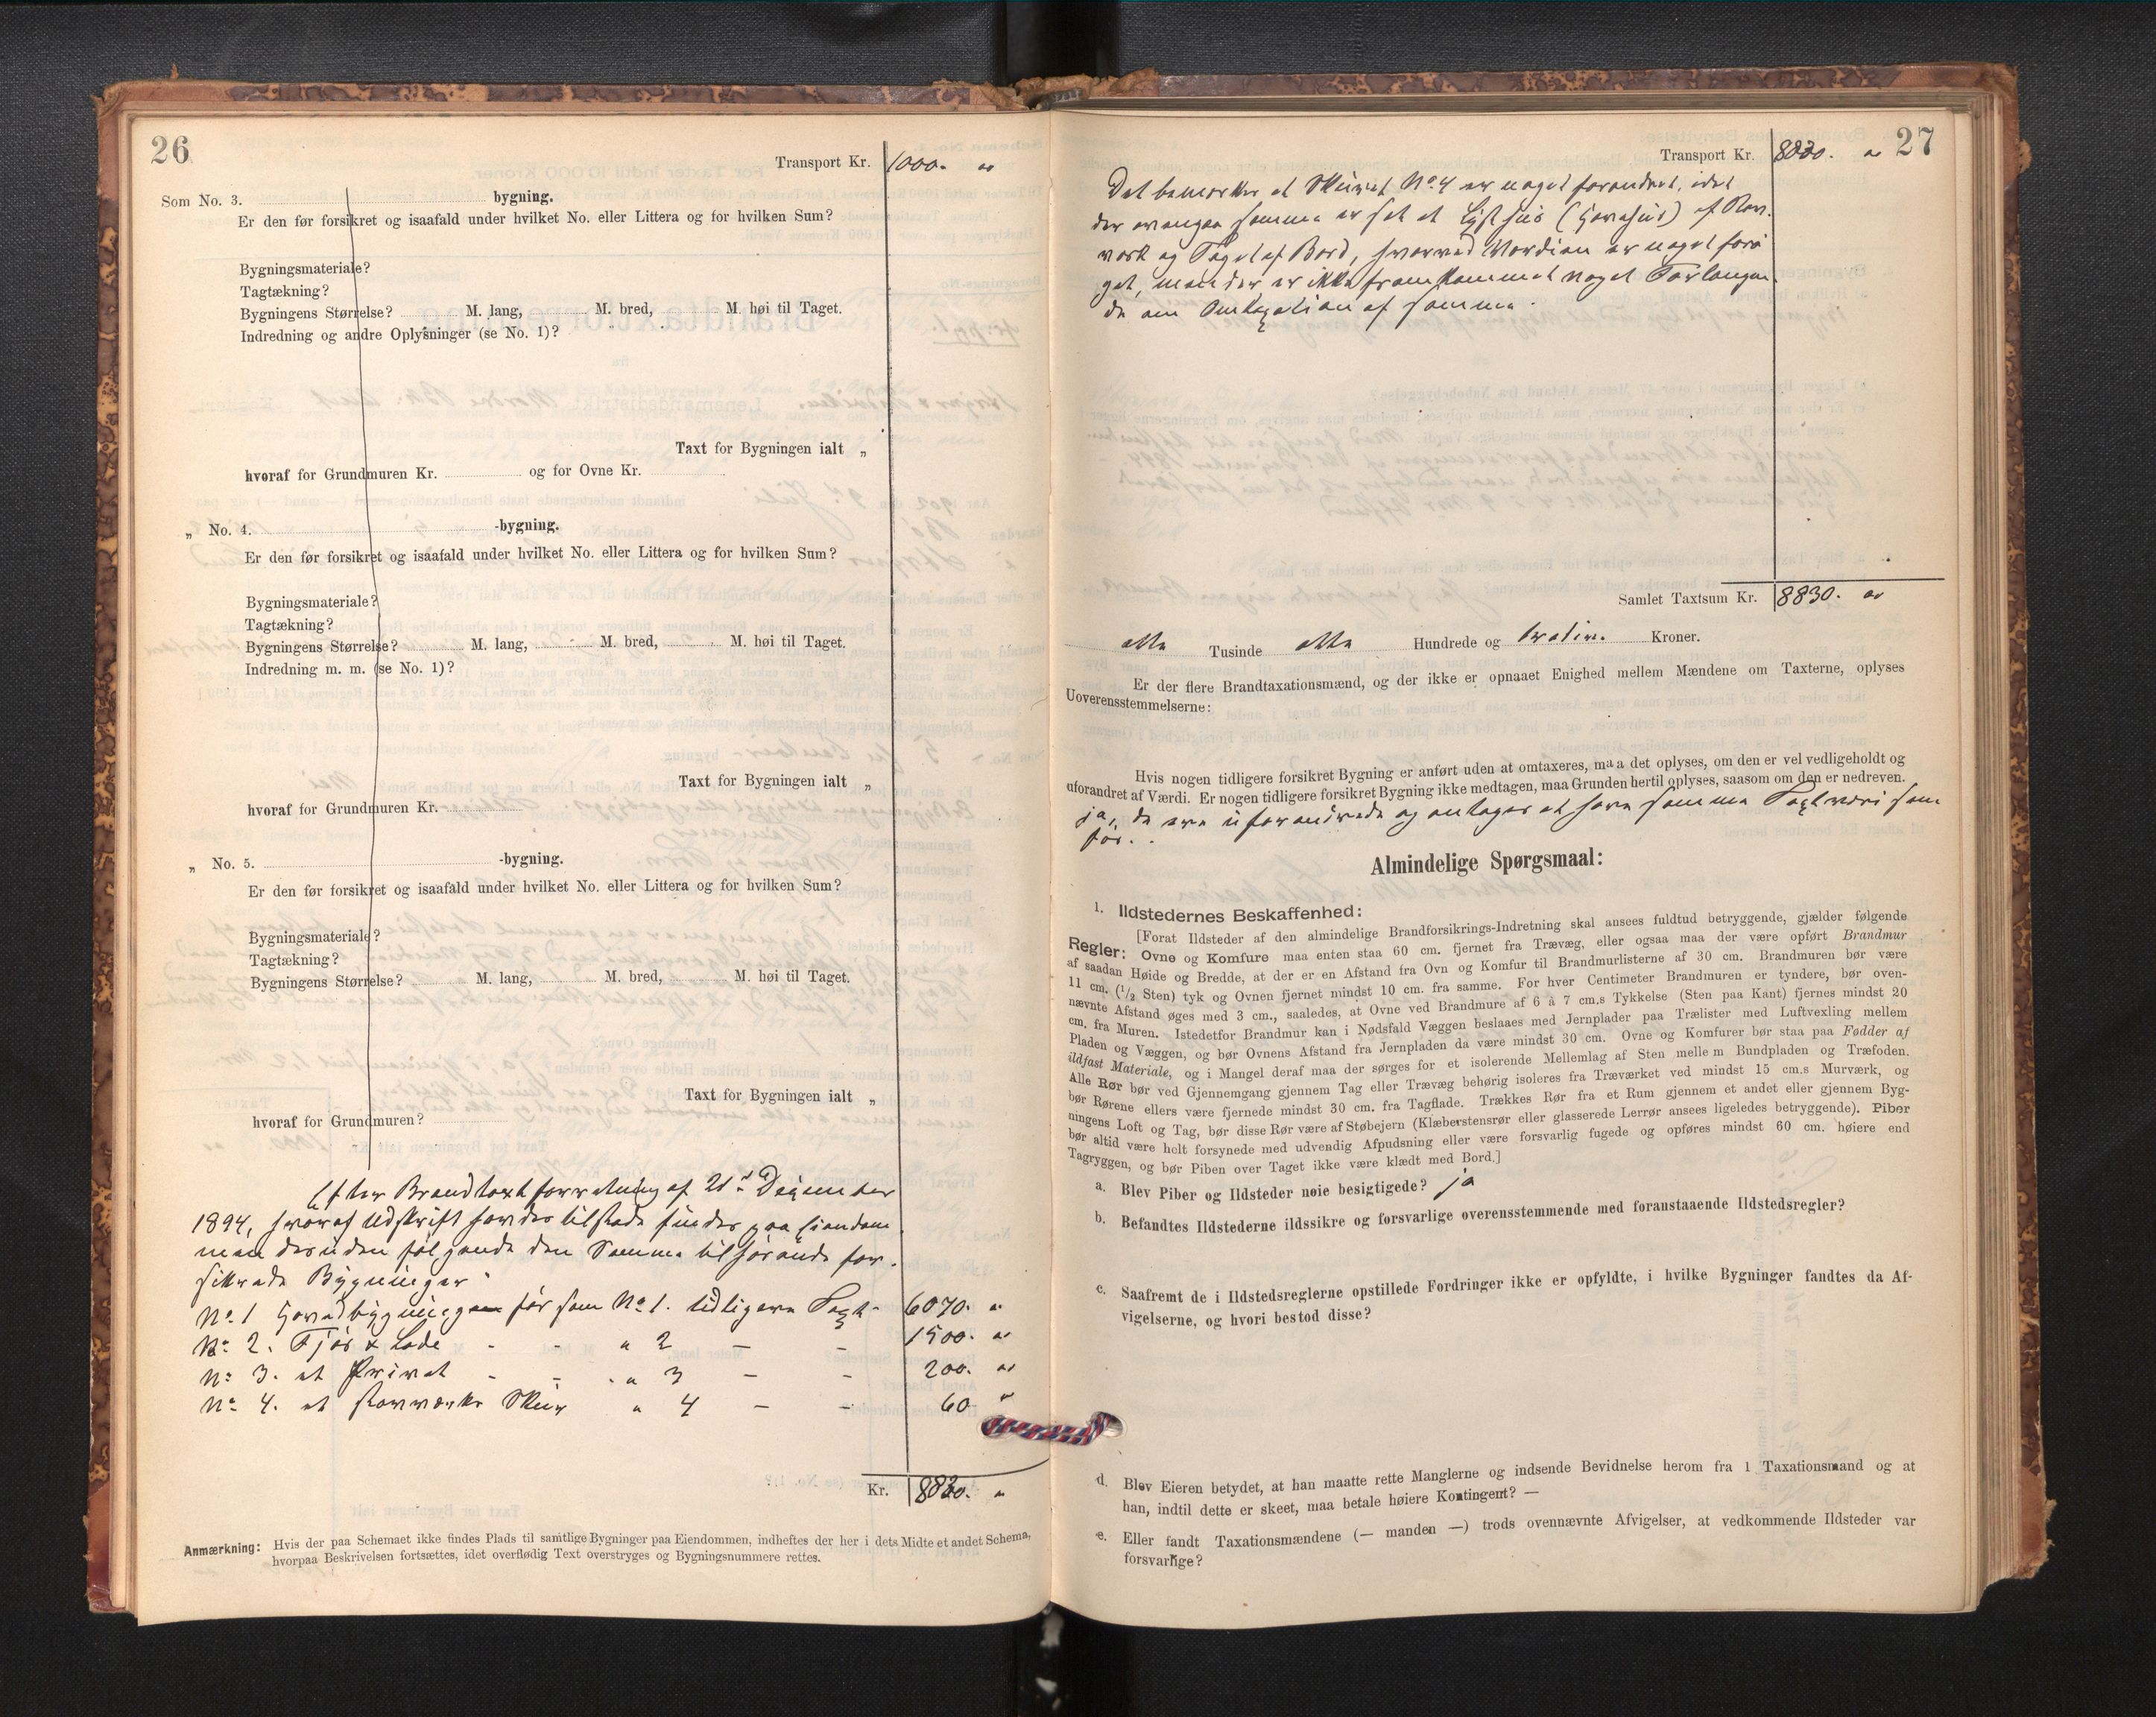 26
Transport Kr. 1000. "
Som No. 3. bygning.
Er den før forsikret og isaafald under hvilket No. eller Littera og for hvilken Sum?
Bygningsmateriale?
Tagtækning?
Bygningens Størrelse? M. lang, M. bred, M. høi til Taget.
Indredning og andre Oplysninger (se No. 1)?
Taxt for Bygningen ialt „
hvoraf for Grundmuren Kr. og for Ovne Kr.
„ No. 4. -bygning.
Er den før forsikret og isaafald under hvilket No. eller Littera og for hvilken Sum?
Bygningsmateriale?
Tagtækning?
Bygningens Størrelse? M. lang, M. bred, M. høi til Taget.
Indredning m. m. (se No. 1)?
Taxt for Bygningen ialt „
hvoraf for Grundmuren Kr.
„ No. 5. -bygning.
Er den før forsikret og isaafald under hvilket No. eller Littera og for hvilken Sum?
Bygningsmateriale?
Tagtækning?
Bygningens Størrelse? M. lang, M. bred, M. høi til Taget.
Taxt for Bygningen ialt „
hvoraf for Grundmuren?
Efter Brandtaxtforretning af 21d Desember
1894, hvoraf Udskrift havdes tilstede findes paa Eiendom
men desuden følgende den Samme tilhørende for-
sikrede Bygninger
No. 1 Hovedbygningen før som No. 1. tidligere Taxt 6070. "
No. 2. Fjøs & Lade - - " 2 - - 1500. "
No. 3. et Privet - - " 3 - - 200. "
No. 4. et Stavværks Skur " 4 - - 60 "
Kr. 8830. "
Anmærkning: Hvis der paa Schemaet ikke findes Plads til samtlige Bygninger paa Eiendommen, indheftes der her i dets Midte et andet Schema,
hvorpaa Beskrivelsen fortsættes, idet overflødig Text overstryges og Bygningsnummere rettes.
27
Transport Kr. 8830. "
Det bemærkes at Skuret No. 4 er noget forandret, idet
der ovenpaa samme er sat et Lysthus (Havehus) af Stav-
værk og Taget af Bord, hvorved Værdien er noget forø
get, men der er ikke fremkommet noget Forlangen
de om Omtaxation af samme.
Samlet Taxtsum Kr. 8830. "
otte Tusinde otte Hundrede og tredive. Kroner.
Er der flere Brandtaxationsmænd, og der ikke er opnaaet Enighed mellem Mændene om Taxterne, oplyses
Uoverensstemmelserne:
Hvis nogen tidligere forsikret Bygning er anført uden at omtaxeres, maa det oplyses, om den er vel vedligeholdt og
uforandret af Værdi. Er nogen tidligere forsikret Bygning ikke medtagen, maa Grunden hertil oplyses, saasom om den er nedreven.
ja, de ere uforandrede og antages at have samme Taxtværdi som
før.
Almindelige Spørgsmaal:
1. Ildstedernes Beskaffenhed:
[Forat Ildsteder af den almindelige Brandforsikrings-Indretning skal ansees fuldtud betryggende, gjælder følgende
Regler: Ovne og Komfure maa enten staa 60 cm. fjernet fra Trævæg, eller ogsaa maa der være opført Brandmur
af saadan Høide og Bredde, at der er en Afstand fra Ovn og Komfur til Brandmurlisterne af 30 cm. Brandmuren bør være
11 cm. (1/2 Sten) tyk og Ovnen fjernet mindst 10 cm. fra samme. For hver Centimeter Brandmuren er tyndere, bør oven-
nævnte Afstand øges med 3 cm., saaledes, at Ovne ved Brandmure af 6 à 7 cm.s Tykkelse (Sten paa Kant) fjernes mindst 20
cm. fra Muren. Istedetfor Brandmur kan i Nødsfald Væggen beslaaes med Jernplader paa Trælister med Luftvexling mellem
Pladen og Væggen, og bør Ovnens Afstand fra Jernpladen da være mindst 30 cm. Ovne og Komfurer bør staa paa Fødder af
ildfast Materiale, og i Mangel deraf maa der sørges for et isolerende Mellemlag af Sten mellem Bundpladen og Træfoden.
Alle Rør bør ved Gjennemgang gjennem Tag eller Trævæg behørig isoleres fra Træværket ved mindst 15 cm.s Murværk, og
bør Rørene ellers være fjernede mindst 30 cm. fra Tagflade. Trækkes Rør fra et Rum gjennem et andet eller gjennem Byg-
ningens Loft og Tag, bør disse Rør være af Støbejern (Klæberstensrør eller glasserede Lerrør ansees ligeledes betryggende). Piber
bør altid være helt forsynede med udvendig Afpudsning eller være forsvarlig fugede og opføres mindst 60 cm. høiere end
Tagryggen, og bør Piben over Taget ikke være klædt med Bord.]
a. Blev Piber og Ildsteder nøie besigtigede? ja
b. Befandtes Ildstederne ildssikre og forsvarlige overensstemmende med foranstaaende Ildstedsregler?
c. Saafremt de i Ildstedsreglerne opstillede Fordringer ikke er opfyldte, i hvilke Bygninger fandtes da Af-
vigelserne, og hvori bestod disse?
d. Blev Eieren betydet, at han maatte rette Manglerne og indsende Bevidnelse herom fra 1 Taxationsmand og at
han, indtil dette er skeet, maa betale høiere Kontingent? —
e. Eller fandt Taxationsmændene (— manden —) trods ovennævnte Afvigelser, at vedkommende Ildsteder var
forsvarlige?